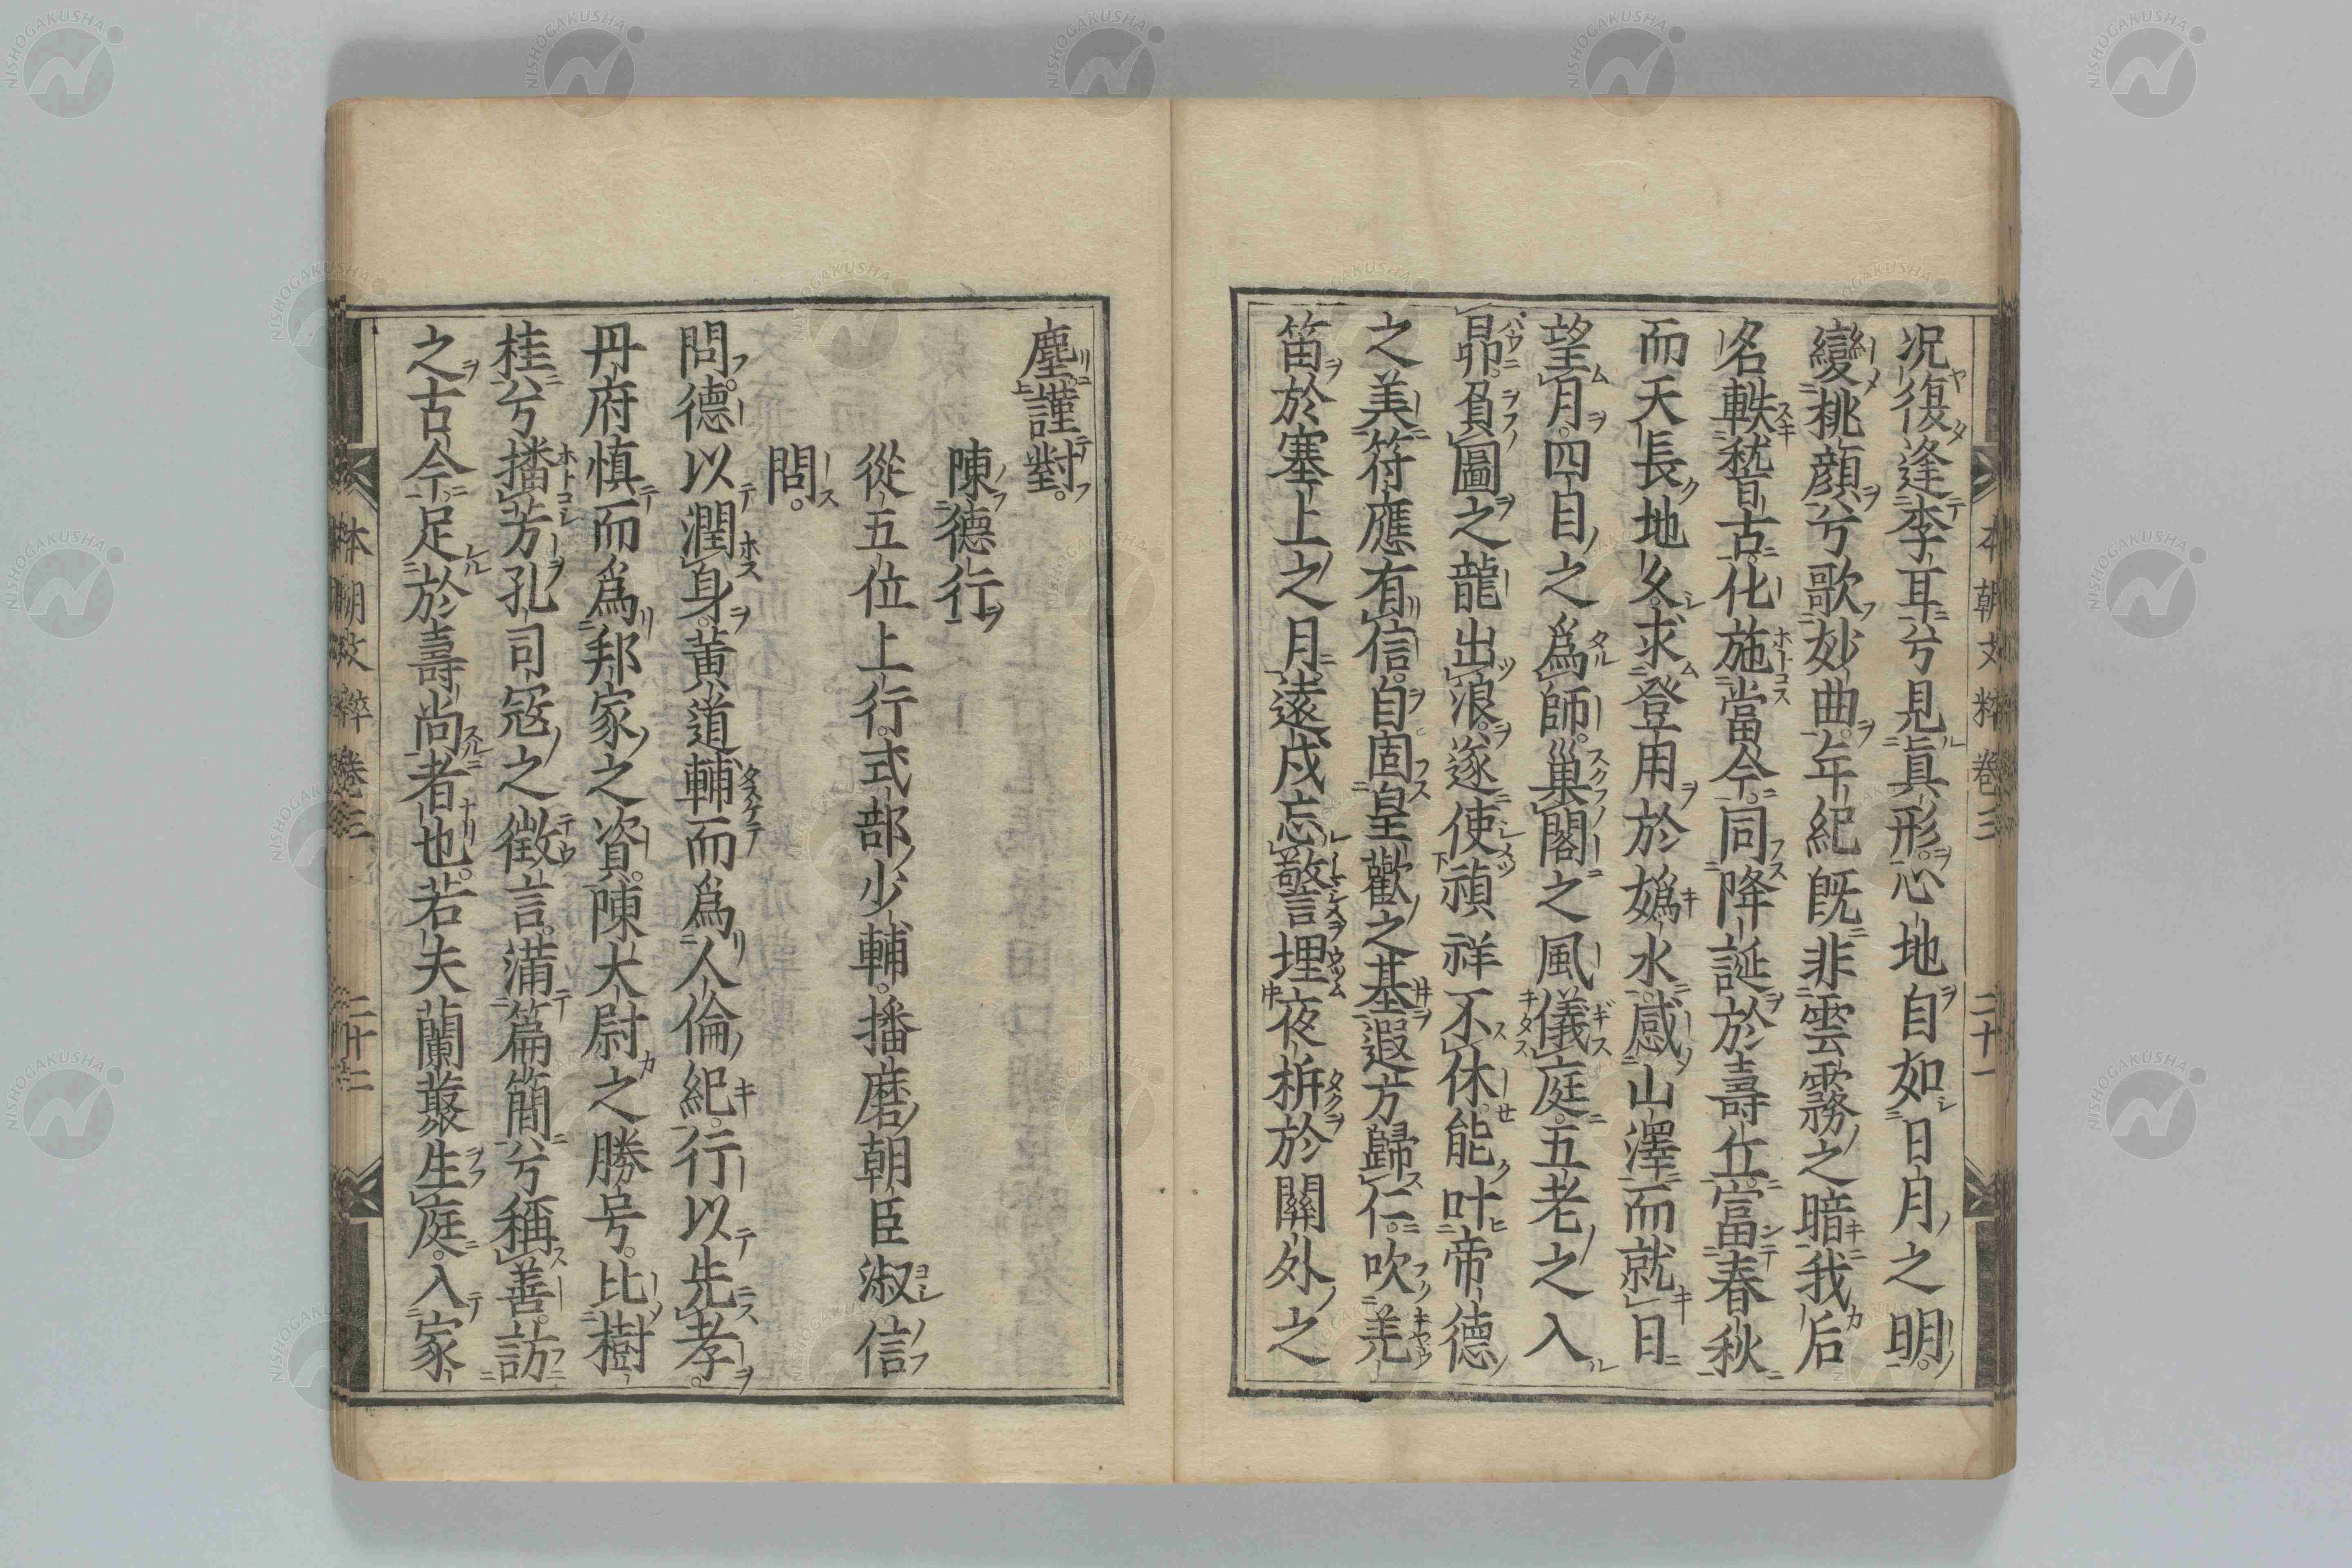 况復逢李耳兮見眞形。心地自如日月之明。
變桃顔兮歌妙曲。年紀既非雲霧之暗我后
名軼稽古。化施當今。同降誕於壽丘。富春秋
而天長地久。求登用於嬀水。感山澤而就日
望月。四目之爲師。巢閣之風儀庭。五老之入
昴。負圖之龍出浪。遂使禎祥不休。能叶帝德
之美。符應有信。自固皇歡之基。遐方歸仁。吹羌
笛於塞上之月。遠戍忘警。埋夜柝於關外之
本朝文粹卷三 二十一
塵謹對。
陳德行
從五位上行。式部少輔。播磨朝臣淑信
問。
問。德以潤身。黄道輔而爲人倫紀。行以先孝。
丹府愼而爲邦家之資。陳太尉之勝号。比樹
桂兮播芳。孔司寇之徴言。滿篇簡兮稱善。訪
之古今。足於壽尚者也。若夫蘭叢生庭。入家
本朝文粹卷三 二十二
NISHOGAKUSHA